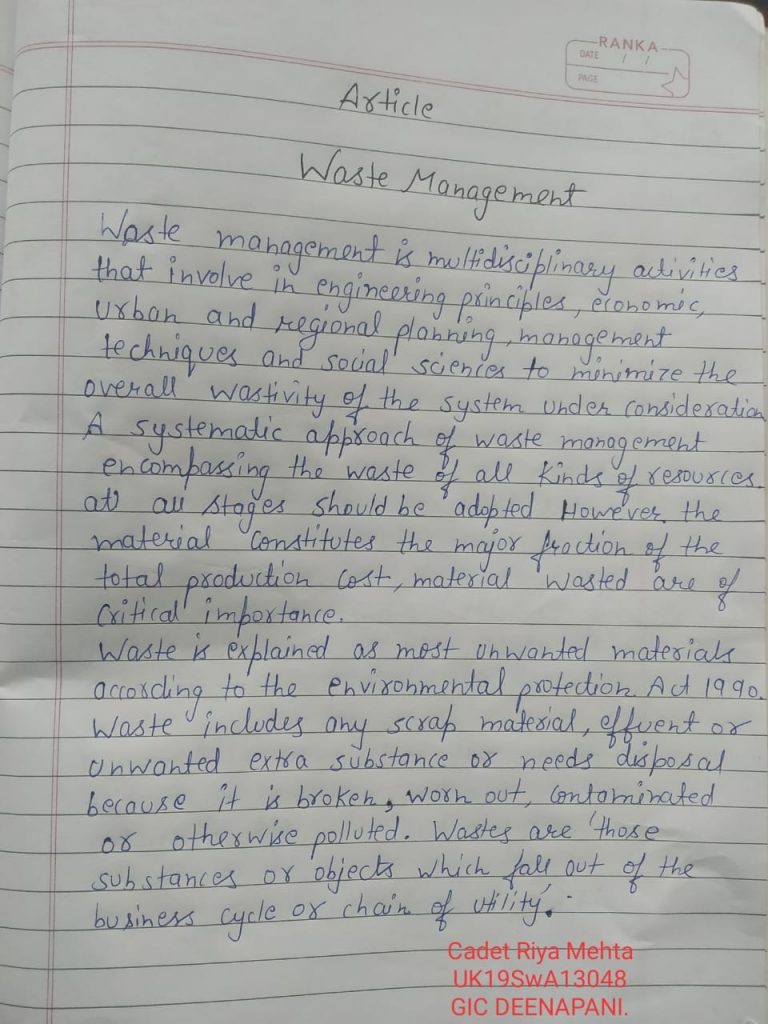 RANKA
DATE / /
PAGE
Article
Waste Management
Waste management is multidisciplinary activities
that involve in engineering principles, economic,
urban and regional planning, management
techniques and social sciences to minimize the
overall wastivity of the system under consideration
A systematic approach of waste management
encompassing the waste of all kinds of resources.
at all stages should be adopted However the
material constitutes the major fraction of the
total production cost, material wasted are of
critical importance.
Waste is explained as most unwanted materials
according to the environmental protection Act 1990.
Waste includes any scrap material, effuent or
unwanted extra substance or needs disposal
because it is broken, worn out, contaminated
or otherwise polluted. Wastes are those
substances or objects which fall out of the
business cycle or chain of utility.
Cadet Riya Mehta
UK19SwA13048
GIC DEENAPANI.